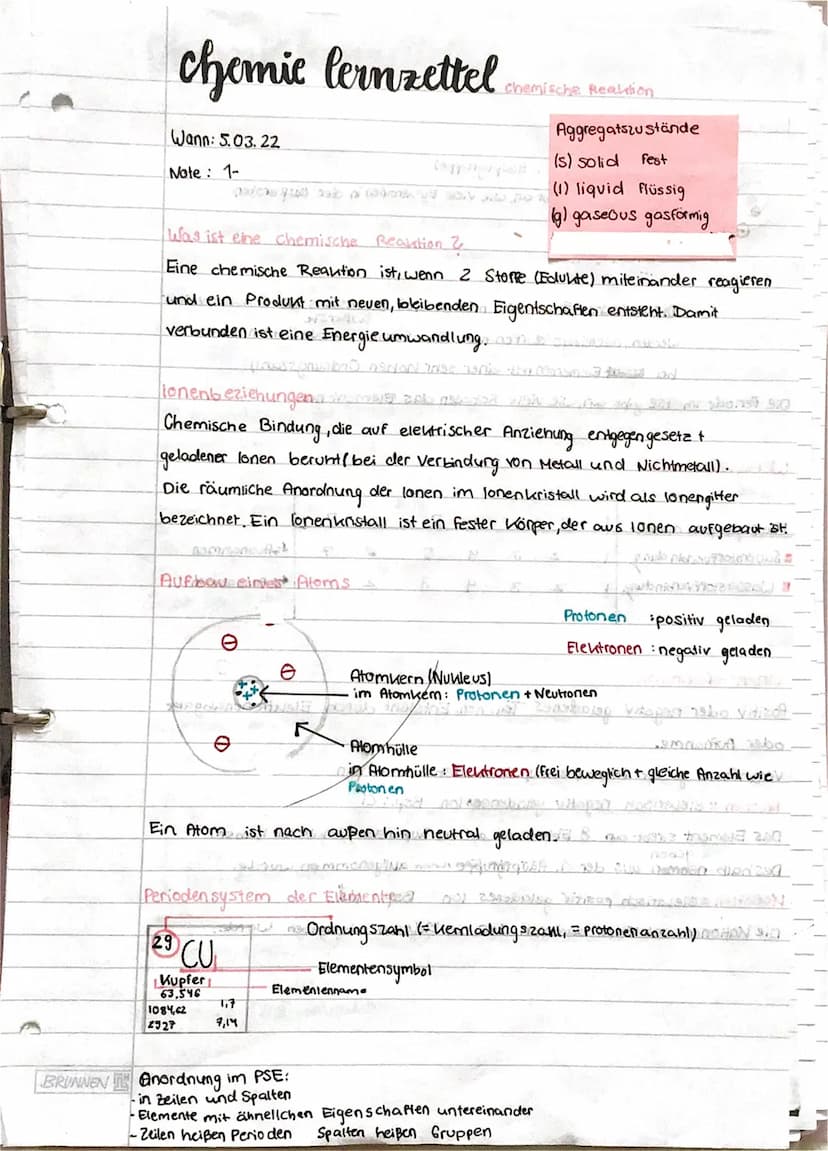 chemie lernzettel chemische Reaktion
Wann: 5.03.22
Note: 1-
Aggregatszustände
(s) solid fest
(l) liquid flüssig
(g) gaseous gasförmig
Was ist eine chemische Reaktion?
Eine chemische Reaktion ist, wenn 2 Stoffe (Edukte) miteinander reagieren
und ein Produkt mit neuen, bleibenden Eigentschaften entsteht. Damit
verbunden ist eine Energieumwandlung.
Ionenbeziehungen
Chemische Bindung, die auf elektrischer Anziehung entgegengesetzt
geladener Ionen beruht (bei der Verbindung von Metall und Nichtmetall).
Die räumliche Anordnung der Ionen im Ionenkristall wird als Ionengitter
bezeichnet. Ein Ionenkristall ist ein fester Körper, der aus Ionen aufgebaut ist.
Aufbau eines Atoms
Protonen : positiv geladen
Elektronen : negativ geladen
Atomkern (Nukleus)
im Atomkern: Protonen + Neutronen
Atomhülle
in Atomhülle: Elektronen (frei beweglich + gleiche Anzahl wie
Protonen
Ein Atom ist nach außen hin neutral geladen.
Periodensystem der Elemente
Ordnungszahl (= Kernladungszahl, = protonenanzahl)
29 CU
Elementensymbol
Kupfer
Elementenname
63,546
1084,62 1,7
2927 7,14
BRUNNEN
Anordnung im PSE:
- in Zeilen und Spalten
- Elemente mit ähnelichen Eigenschaften untereinander
- Zeilen heißen Perioden Spalten heißen Gruppen